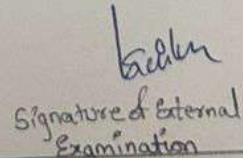 Signature of External
Examination